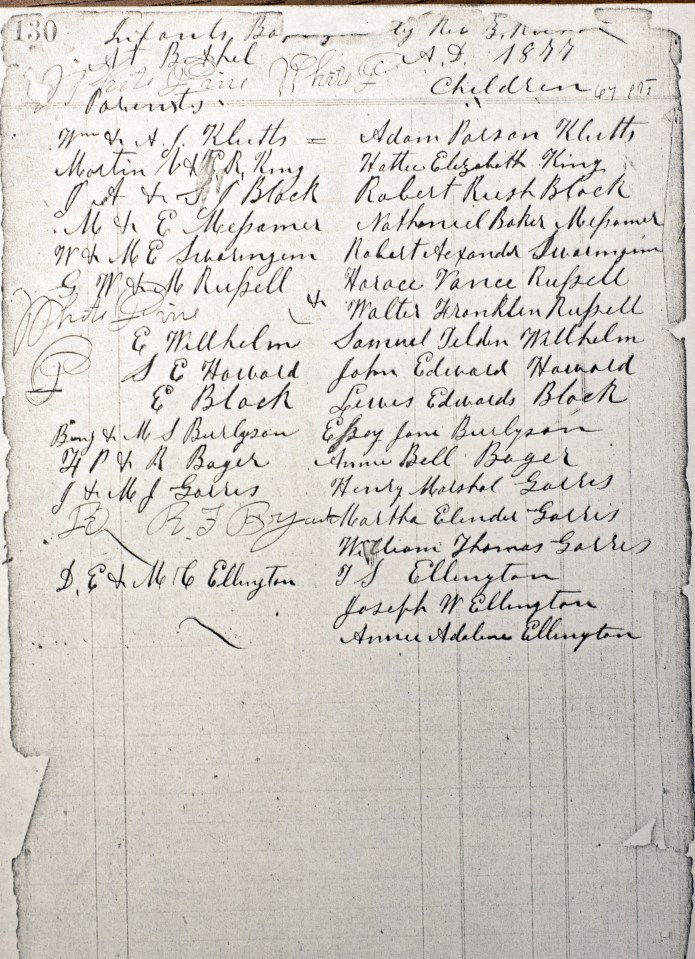 130 Infants by Rev
At Bethel A.D. 1877
White Pine White P
Children
Parents
Wm & A. J. Klutts = Adam Parson Klutts
Martin & R. King Hattie Elizabeth King
J A & S J Block Robert Rush Block
M & E Messamer Nathaniel Baker Messamer
W & M E Swaringim Robert Aexander Swaringim
G W & M Russell Horace Vance Russell
White Pine & Walter Franklin Russell
E Willhelm Samuel Telden Willhelm
P S E Howard John Edward Howard
E Block Lewis Edwards Block
Benj & M S Burlyson Essey Jane Burlyson
H P & R Bager Annie Bell Bager
J & M J Garris Henry Marshal Garris
R F Bryant Martha Elender Garris
William Thomas Garris
D. E & M C Ellington T S Ellington
Joseph W Ellington
Annie Adaline Ellington